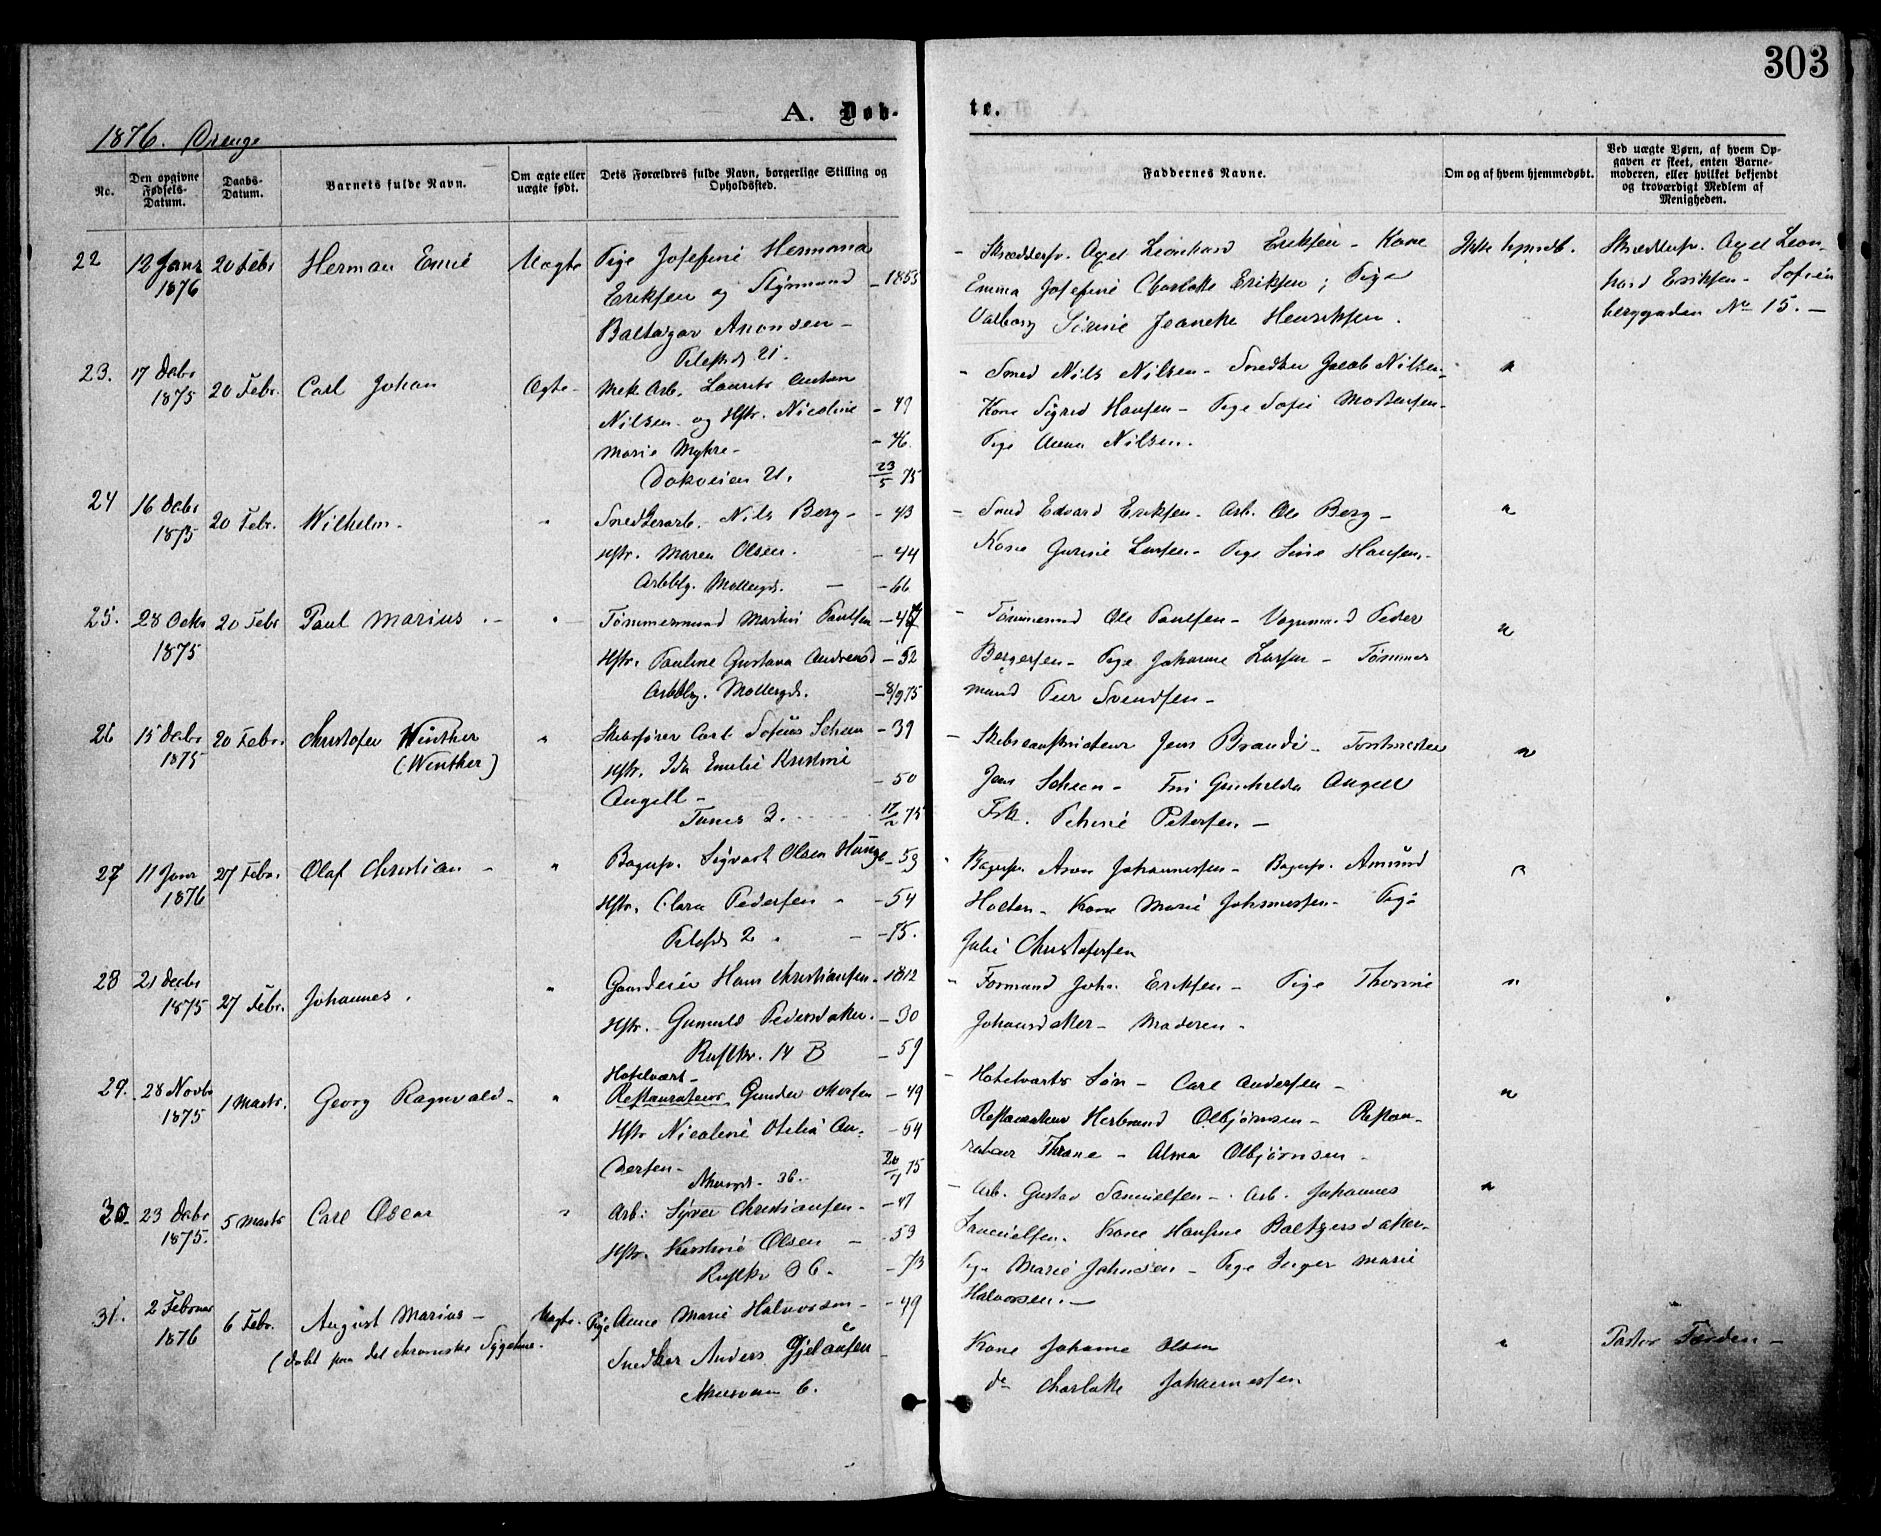 303
A. Døb-
te.
1876. Drenge
No.
Den opgivne
Fødsels-
Datum.
Daabs-
Datum.
Barnets fulde Navn.
Om ægte eller
uægte født.
Dets Forældres fulde Navn, borgerlige Stilling og
Opholdssted.
Faddernes Navne.
Om og af hvem hjemmedøbt.
Ved uægte Børn, af hvem Op-
gaven er skeet, enten Barne-
moderen, eller hvilket bekjendt
og troværdigt Medlem af
Menigheden.
22
12 Janr
1876
20 Febr
Herman Emil
Uægte
Pige Josefine Hermana
Eriksen og Sigmund
Baltazar Aronsen –
21.
- 1853
- Skrædersv. Axel Leonhard Eriksen – Kone
Emma Josefine Charlotte Eriksen; Pige
Valborg Sirine Jeaneke Henriksen.
Ikke hjmdb.
Skrædersv. Axel Leon-
hard Eriksen – Sofien
berggaden No 15. –
23.
17 Debr
1875
20 Febr.
Carl Johan
Ægte –
Mek. Arb. Laurits Anton
Nilsen og Hstr. Nicoline
Marie Myhre –
Dokveien 21.
- 49
- 46.
23/5 75
- Smed Nils Nilsen – Snedker Jacob Nilsen –
Kone Sigrid Hansen – Pige Sofie Mortensen –
Pige Anna Nilsen.
"
24
16 Debr
1875
20 Febr.
Wilhelm –
"
Snedkerarb. Nils Berg –
Hstr. Maren Olsen.
Arbblg. Mollergd. –
- 43
- 44
- 66
- Smed Edvard Eriksen – Arb. Ole Berg –
Kone Gurine Larsen – Pige Line Hansen –
"
25.
28 Octbr
1875
20 Febr
Paul Marius . –
"
Tømmermand Martin Paulsen
Hstr. Pauline Gustava Andreasd
Arbblg. Mollergd.
- 52
- 8/9 75
- Tømmermd Ole Paulsen – Vognmand Peder
Bergersen – Pige Johanne Larsen – Tømmer
mand Peer Svendsen –
"
26
15 Debr
1875
20 Febr.
Christofer Winther
(Winther)
"
Skibsfører Carl Sofus Scheen
Hstr. Ida Emilie Kristine
Angell –
Tunes 3.
- 39
- 50
17/2 75
- Jens Brandi – Forstmester
Jens Scheen – Fru Gunhilda Angell
Frk. Petrine Petersen –
"
27
11 Janr
1876
27 Febr.
Olaf Christian –
"
Bagersv. Sigvart Olsen Hauge
Hstr. Clara Pedersen –
2 –
- 53
- 54
- 75.
- Bagersv. Aron Johannessen – Bagersv. Amund
Holten – Kone Marie Johannessen – Pige
Julie Christofersen
"
28
21 Decbr
1875
27 Febr.
Johannes.
"
Gaardeier Hans Christiansen
Hstr. Gunuld Pedersdatter.
Rustkr. 14 B
- 1812
- 30
- 59
- Formand Joh. Eriksen – Pige Thorine
Johansdatter – Moderen –
"
29.
28 Novbr
1875
1 Marts.
Georg Ragnvald –
"
Hotelvært –
Restaurateur Gunder Olersen
Hstr Nicoline Otilie An-
dersen –
36.
- 49
- 54
75
- Hotelværts Søn – Carl Andersen –
Restaurateur Herbrand Olbjørnsen – Restau-
rateur Thrane – Alma Olbjørnsen –
"
30.
23 Debr
1875.
5 Marts
Carl Oscar
"
Arb. Syver Christiansen –
Hstr. Kirstine Olsen –
Rustkr 36.
- 47
- 53
- 73
- Arb. Gustav Samuelsen – Arb. Johannes
Samuelsen. Kone Hansine Baltzersdatter –
Pige Marie Johnsen – Pige Inger Marie
Halvorsen. –
"
31.
2 Februar
1876
6 Febr.
August Marius –
(døbt paa det chroniske Sygehus.
Uægte.
Pige Anne Marie Halvorsen –
Snedker Anders Gjelausen
6.
- 49
Kone Johanne Olsen
do Charlotte Johannessen
"
Pastor Færden –